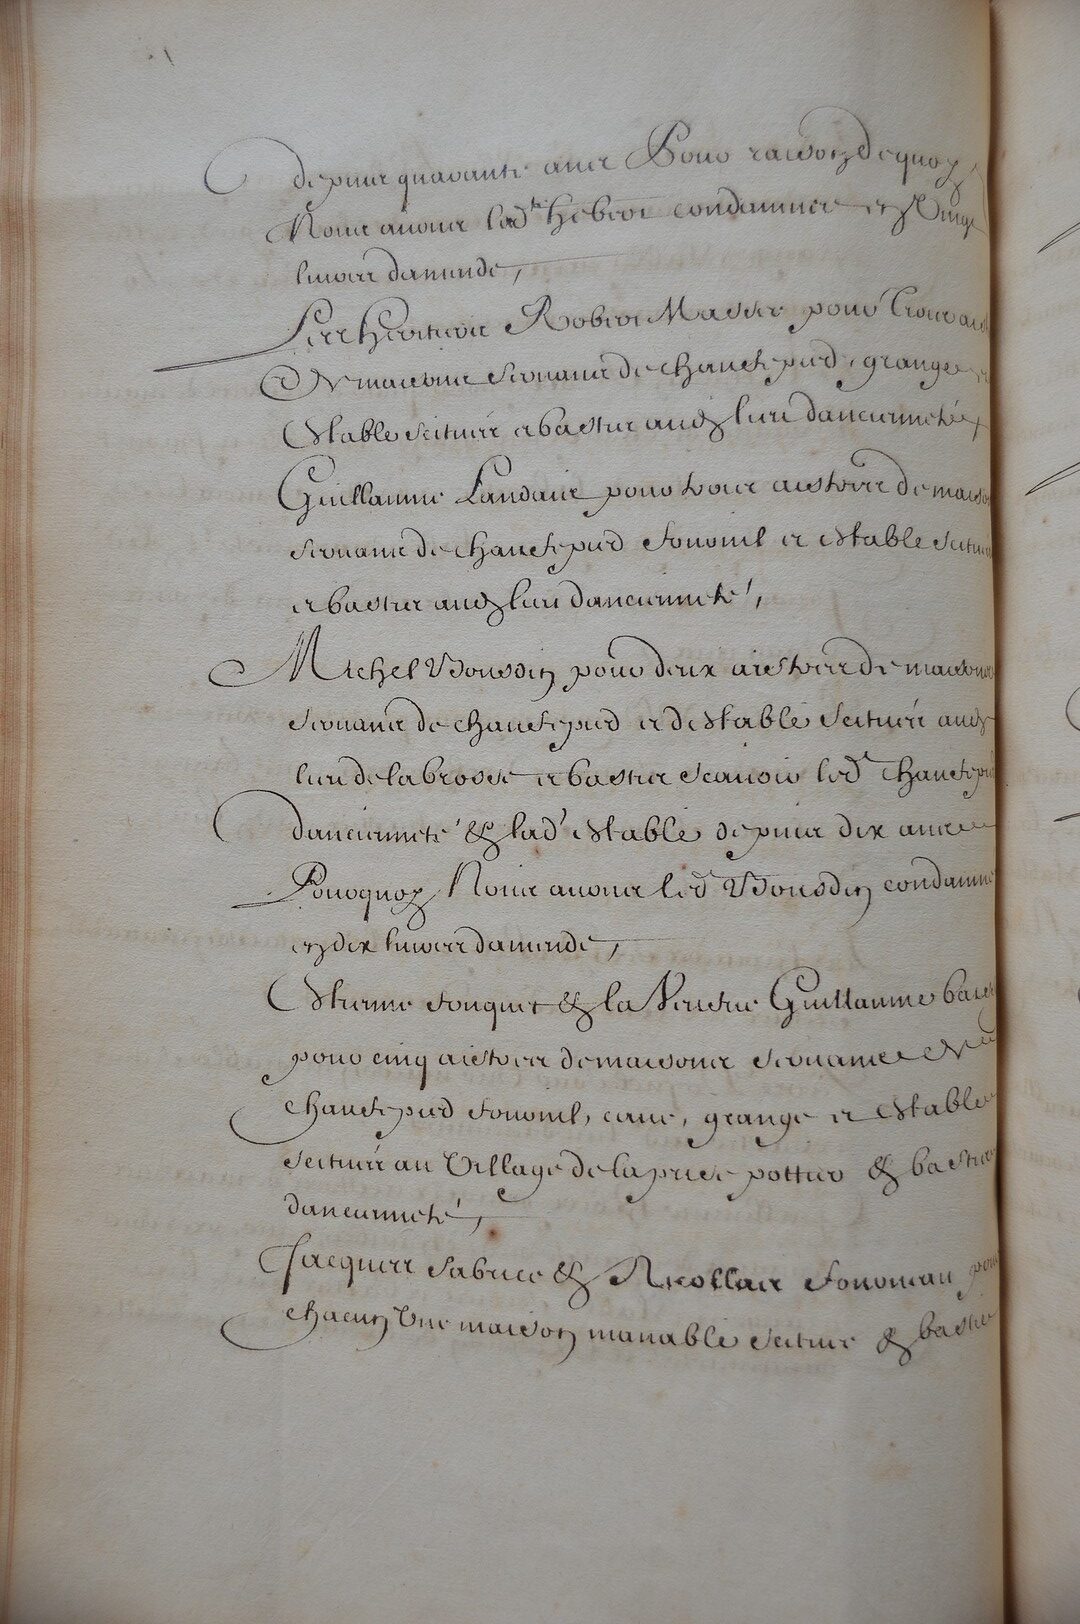 depuis quarante ans Pour raison de quoy
Nous avons lad.te Hebert condamnée en Vingt
livres damende,
Les heritiers Robert Massé pour trois
de maisons servans de chauffepied, grange et
Estable scituez et bastis aud lieu dancienneté,
Guillaume Landais pour trois aistres de maison
servans de chauffepied fournil et estable scituez
et bastis aud lieu dancienneté,
Michel Boursdin pour deux aistres de maisons
servans de chauffepied et destable scituez aud
lieu de la brosse et bastis scavoir led.t chauffepied
dancienneté & lad.t estable depuis dix ans
Pourquoy Nous avons led.t Boursdin condamné
en dix livres damende,
Estienne fouquet & la Veufve Guillaume
pour cinq aistres de maisons servans de
chauffepied fournil, cave, grange et Estable
scituez au Village de la prise pottier & bastis
dancienneté,
Jacques fabrice & Nicollas fourneau pour
chacun Une maison manable scituée & bastie